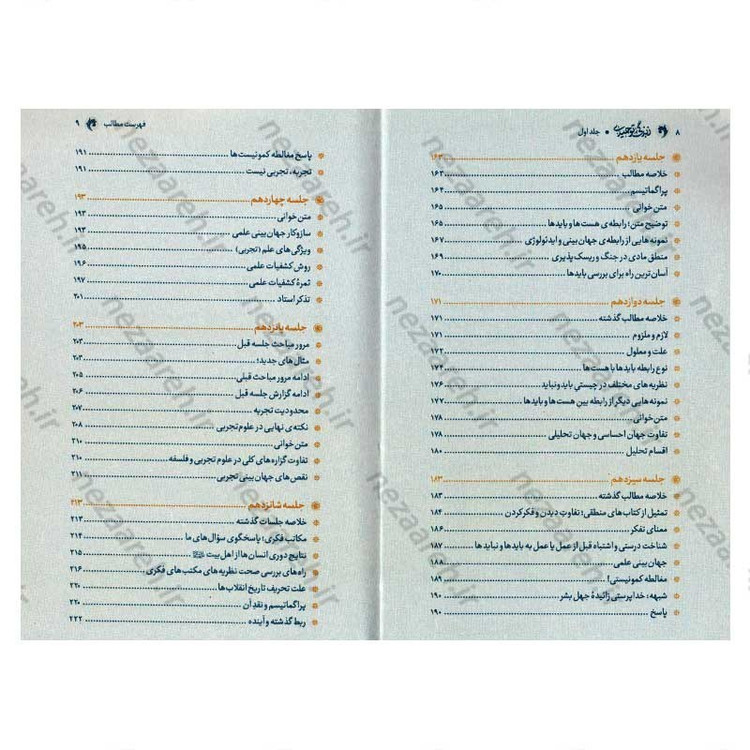 ۸ زندگی توحیدی • جلد اول
جلسه یازدهم ۱۶۳
خلاصه مطالب ۱۶۳
پراگماتیسم ۱۶۴
متن‌خوانی ۱۶۵
توضیح متن؛ رابطه‌ی هست‌ها و بایدها ۱۶۵
نمونه‌هایی از رابطه‌ی جهان‌بینی و ایدئولوژی ۱۶۷
منطق مادی در جنگ و ریسک‌پذیری ۱۶۹
آسان‌ترین راه برای بررسی بایدها ۱۷۰
جلسه دوازدهم ۱۷۱
خلاصه مطالب گذشته ۱۷۱
لازم و ملزوم ۱۷۱
علت و معلول ۱۷۲
نوع رابطه بایدها با هست‌ها ۱۷۴
نظریه‌های مختلف در چیستیِ باید و نباید ۱۷۶
نمونه‌هایی دیگر از رابطه بین هست‌ها و بایدها ۱۷۷
متن‌خوانی ۱۷۸
تفاوت جهان احساسی و جهان تحلیلی ۱۷۸
اقسام تحلیل ۱۸۰
جلسه سیزدهم ۱۸۳
خلاصه مطالب گذشته ۱۸۳
تمثیل از کتاب‌های منطقی؛ تفاوتِ دیدن و فکرکردن ۱۸۴
معنای تفکر ۱۸۶
شناخت درستی و اشتباه قبل از عمل یا عمل به بایدها و نبایدها ۱۸۷
جهان‌بینی علمی ۱۸۸
مغالطه کمونیستی! ۱۸۹
شبهه: خداپرستی زائیدهٔ جهل بشر ۱۹۰
پاسخ ۱۹۰
فهرست مطالب ۹
پاسخ مغالطه کمونیست‌ها ۱۹۱
تجربه، تجربی نیست ۱۹۱
جلسه چهاردهم ۱۹۳
متن‌خوانی ۱۹۳
سازوکار جهان‌بینی علمی ۱۹۳
ویژگی‌های علم (تجربی) ۱۹۵
روش کشفیات علمی ۱۹۶
ثمرهٔ کشفیات علمی ۱۹۷
تذکر استاد ۲۰۱
جلسه پانزدهم ۲۰۳
مرور مباحث جلسه قبل ۲۰۳
مثال‌های جدید؛ ۲۰۴
ادامه مرور مباحث قبلی ۲۰۵
ادامه گزارش جلسه قبل ۲۰۶
محدودیت تجربه ۲۰۷
نکته‌ی نهایی در علوم تجربی ۲۰۸
متن‌خوانی ۲۱۰
تفاوت گزاره‌های کلی در علوم تجربی و فلسفه ۲۱۰
نقص‌های جهان‌بینی تجربی ۲۱۱
جلسه شانزدهم ۲۱۳
خلاصه جلسات گذشته ۲۱۳
مکاتب فکری؛ پاسخگوی سؤال‌های ما ۲۱۴
نتایج دوری انسان‌ها از اهل بیت ۲۱۵
راه‌های بررسی صحت نظریه‌های مکتب‌های فکری ۲۱۶
علت تحریف تاریخ انقلاب‌ها ۲۲۰
پراگماتیسم و نقدِ آن ۲۲۰
ربط گذشته و آینده ۲۲۲
nezaareh.ir